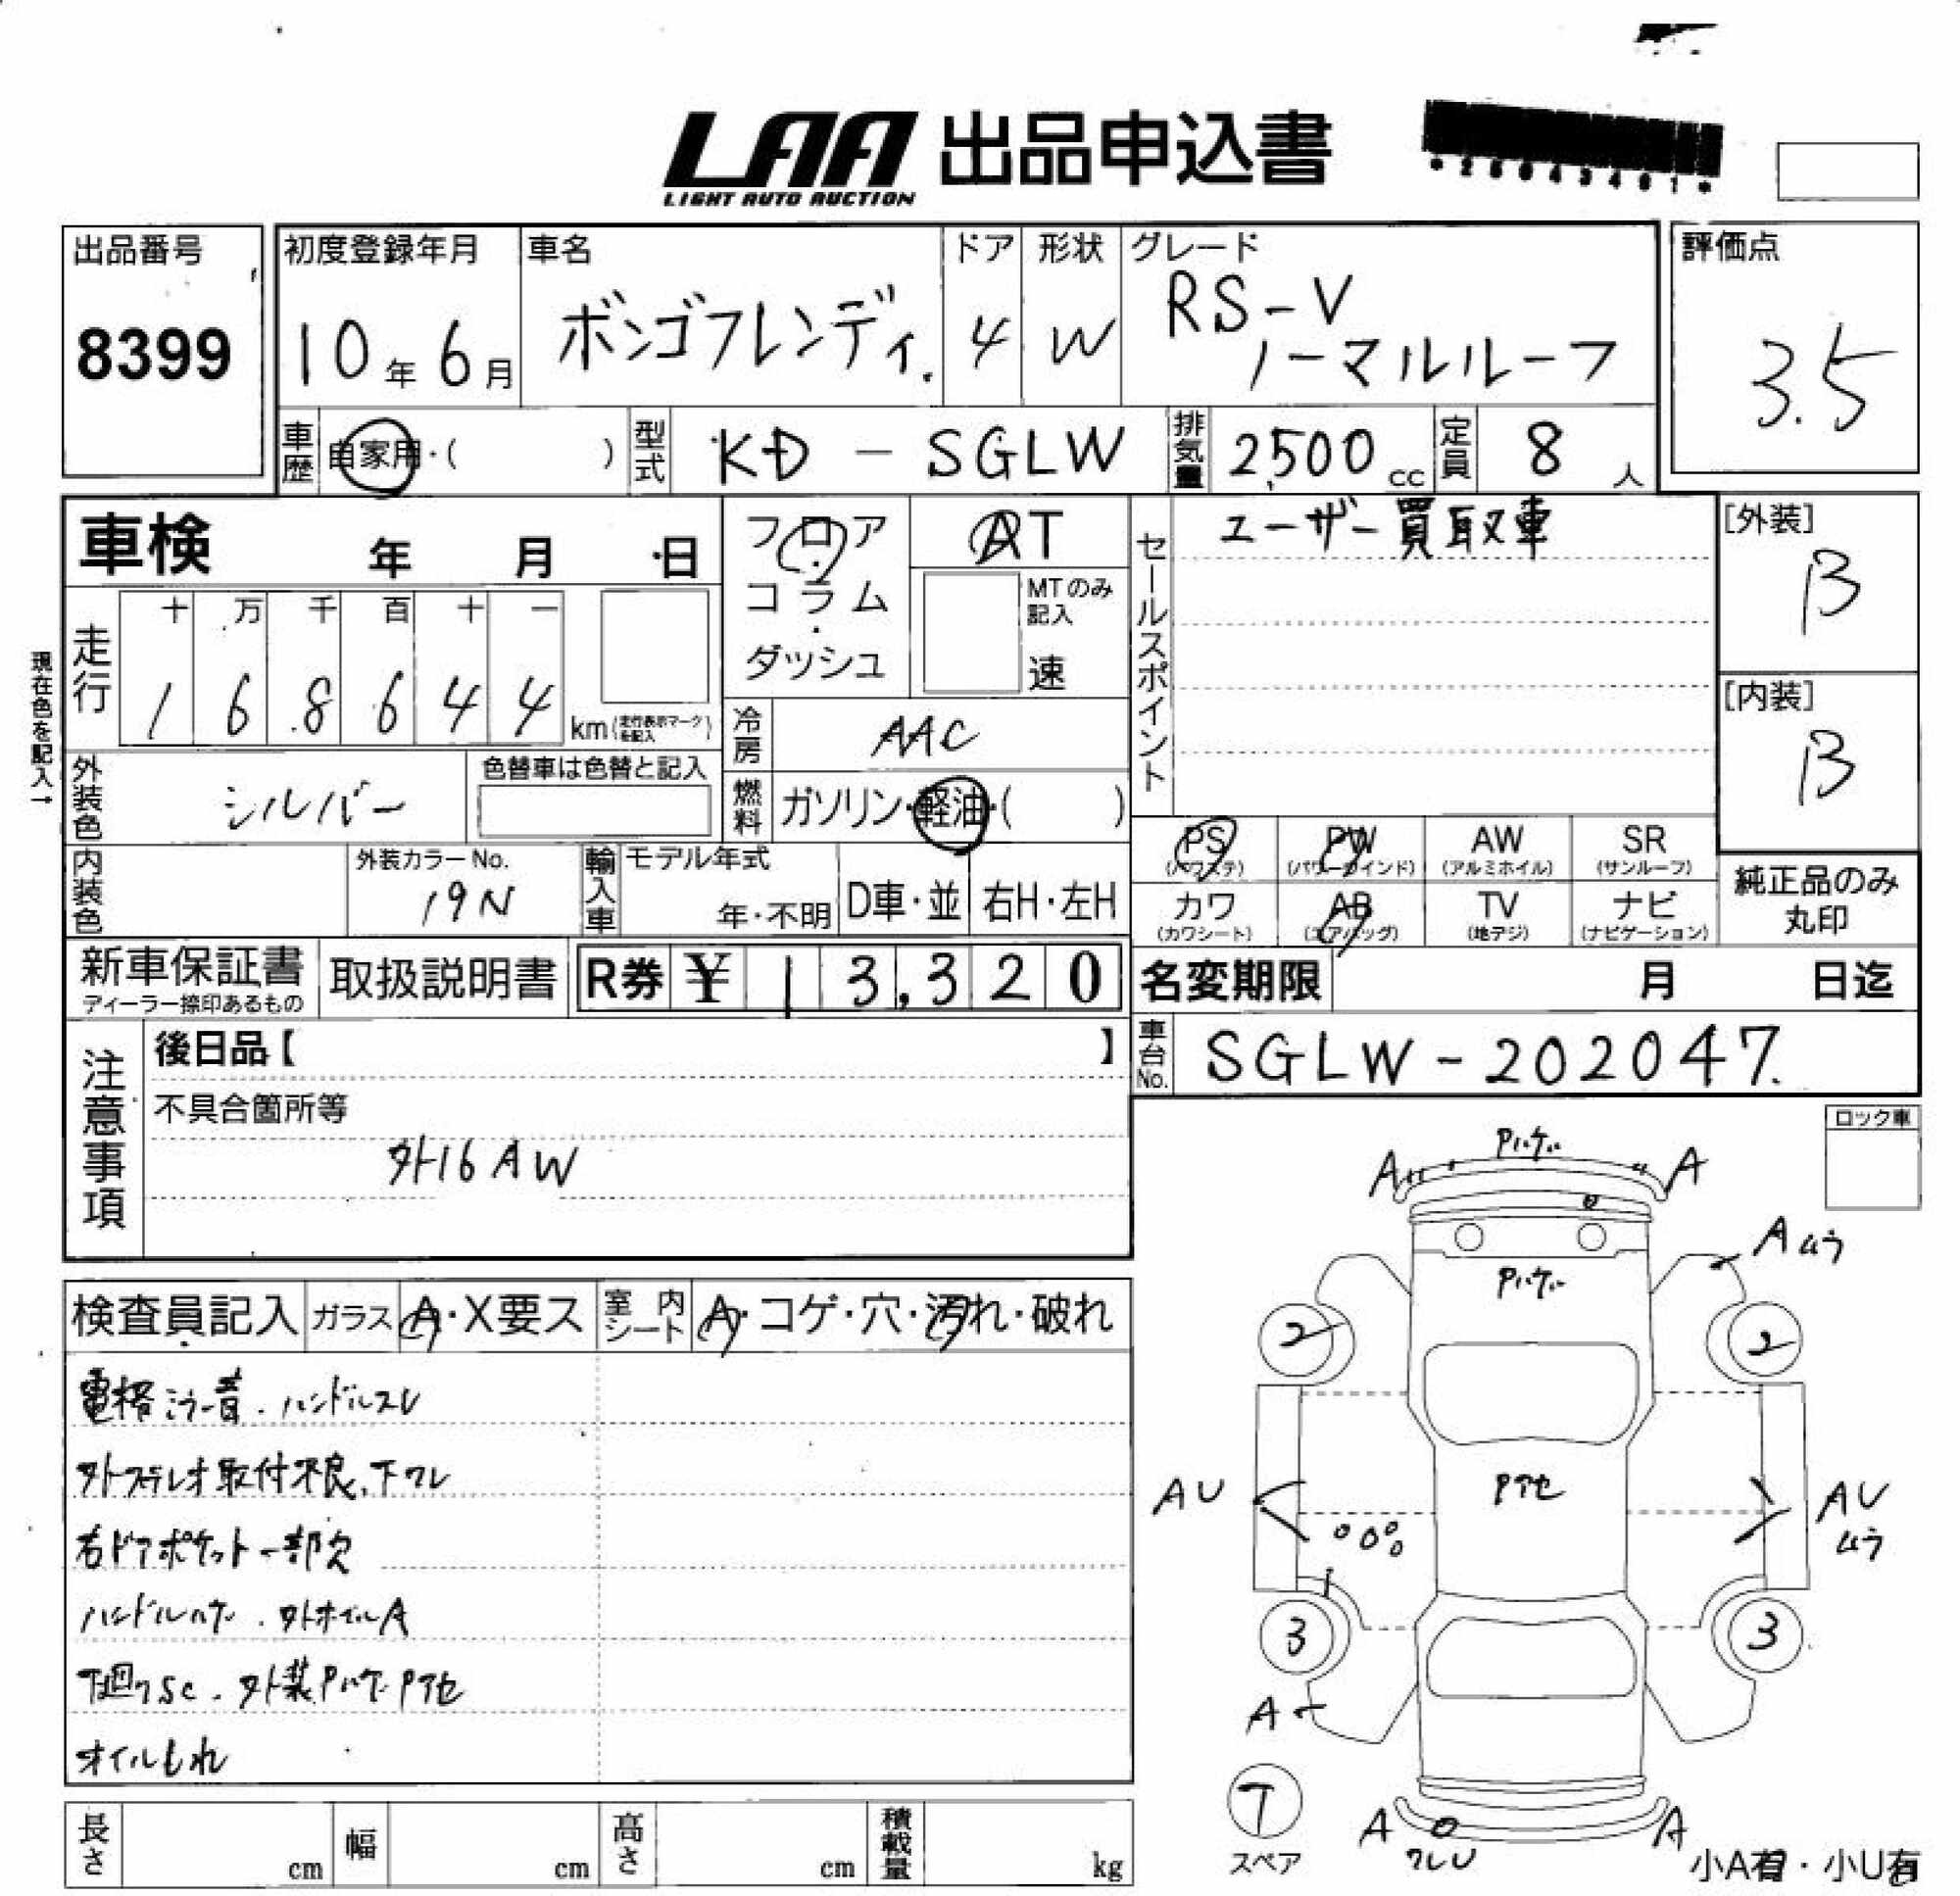 LAA 出品申込書
LIGHT AUTO AUCTION
*26043401*
出品番号
8399
初度登録年月
10年6月
車名
ボンゴフレンディ.
ドア
4
形状
W
グレード
RS-V
ノーマルルーフ
評価点
3.5
車歴
自家用・( )
型式
KD-SGLW
排気量
2,500cc
定員
8人
車検 年 月 日
フロア・コラム・ダッシュ
AT
MTのみ記入
速
セールスポイント
ユーザー買取車
[外装]
B
[内装]
B
現在色を記入→
走行
十万千百十一
168644km(走行表示マークを記入)
冷房
AAC
外装色
シルバー
色替車は色替と記入
燃料
ガソリン・軽油・( )
PS(パワステ)
PW(パワーウインド)
AW(アルミホイル)
SR(サンルーフ)
カワ(カワシート)
AB(エアバッグ)
TV(地デジ)
ナビ(ナビゲーション)
純正品のみ
丸印
内装色
外装カラーNo.
19N
輸入車
モデル年式
年・不明
D車・並
右H・左H
新車保証書
ディーラー捺印あるもの
取扱説明書
R券 ¥13,320
名変期限 月 日迄
車台No.
SGLW-202047.
注意事項
後日品【 】
不具合箇所等
外16AW
ロック車
検査員記入
ガラス A・X要ス
室内シート A・コゲ・穴・汚れ・破れ
電格ミラー音.ハンドルスレ
外ステレオ取付不良、下ワレ
右ドアポケット一部欠
ハンドルハゲ.外ホイルA
下廻りSC.外装Pハゲ.Pアセ
オイルもれ
Pハゲ
A A
Aムラ
Pハゲ
2 2
Pアセ
AU
AU
ムラ
3 3
A
T
スペア
A A
ワレU
小A有・小U有
長さ cm
幅 cm
高さ cm
積載量 kg